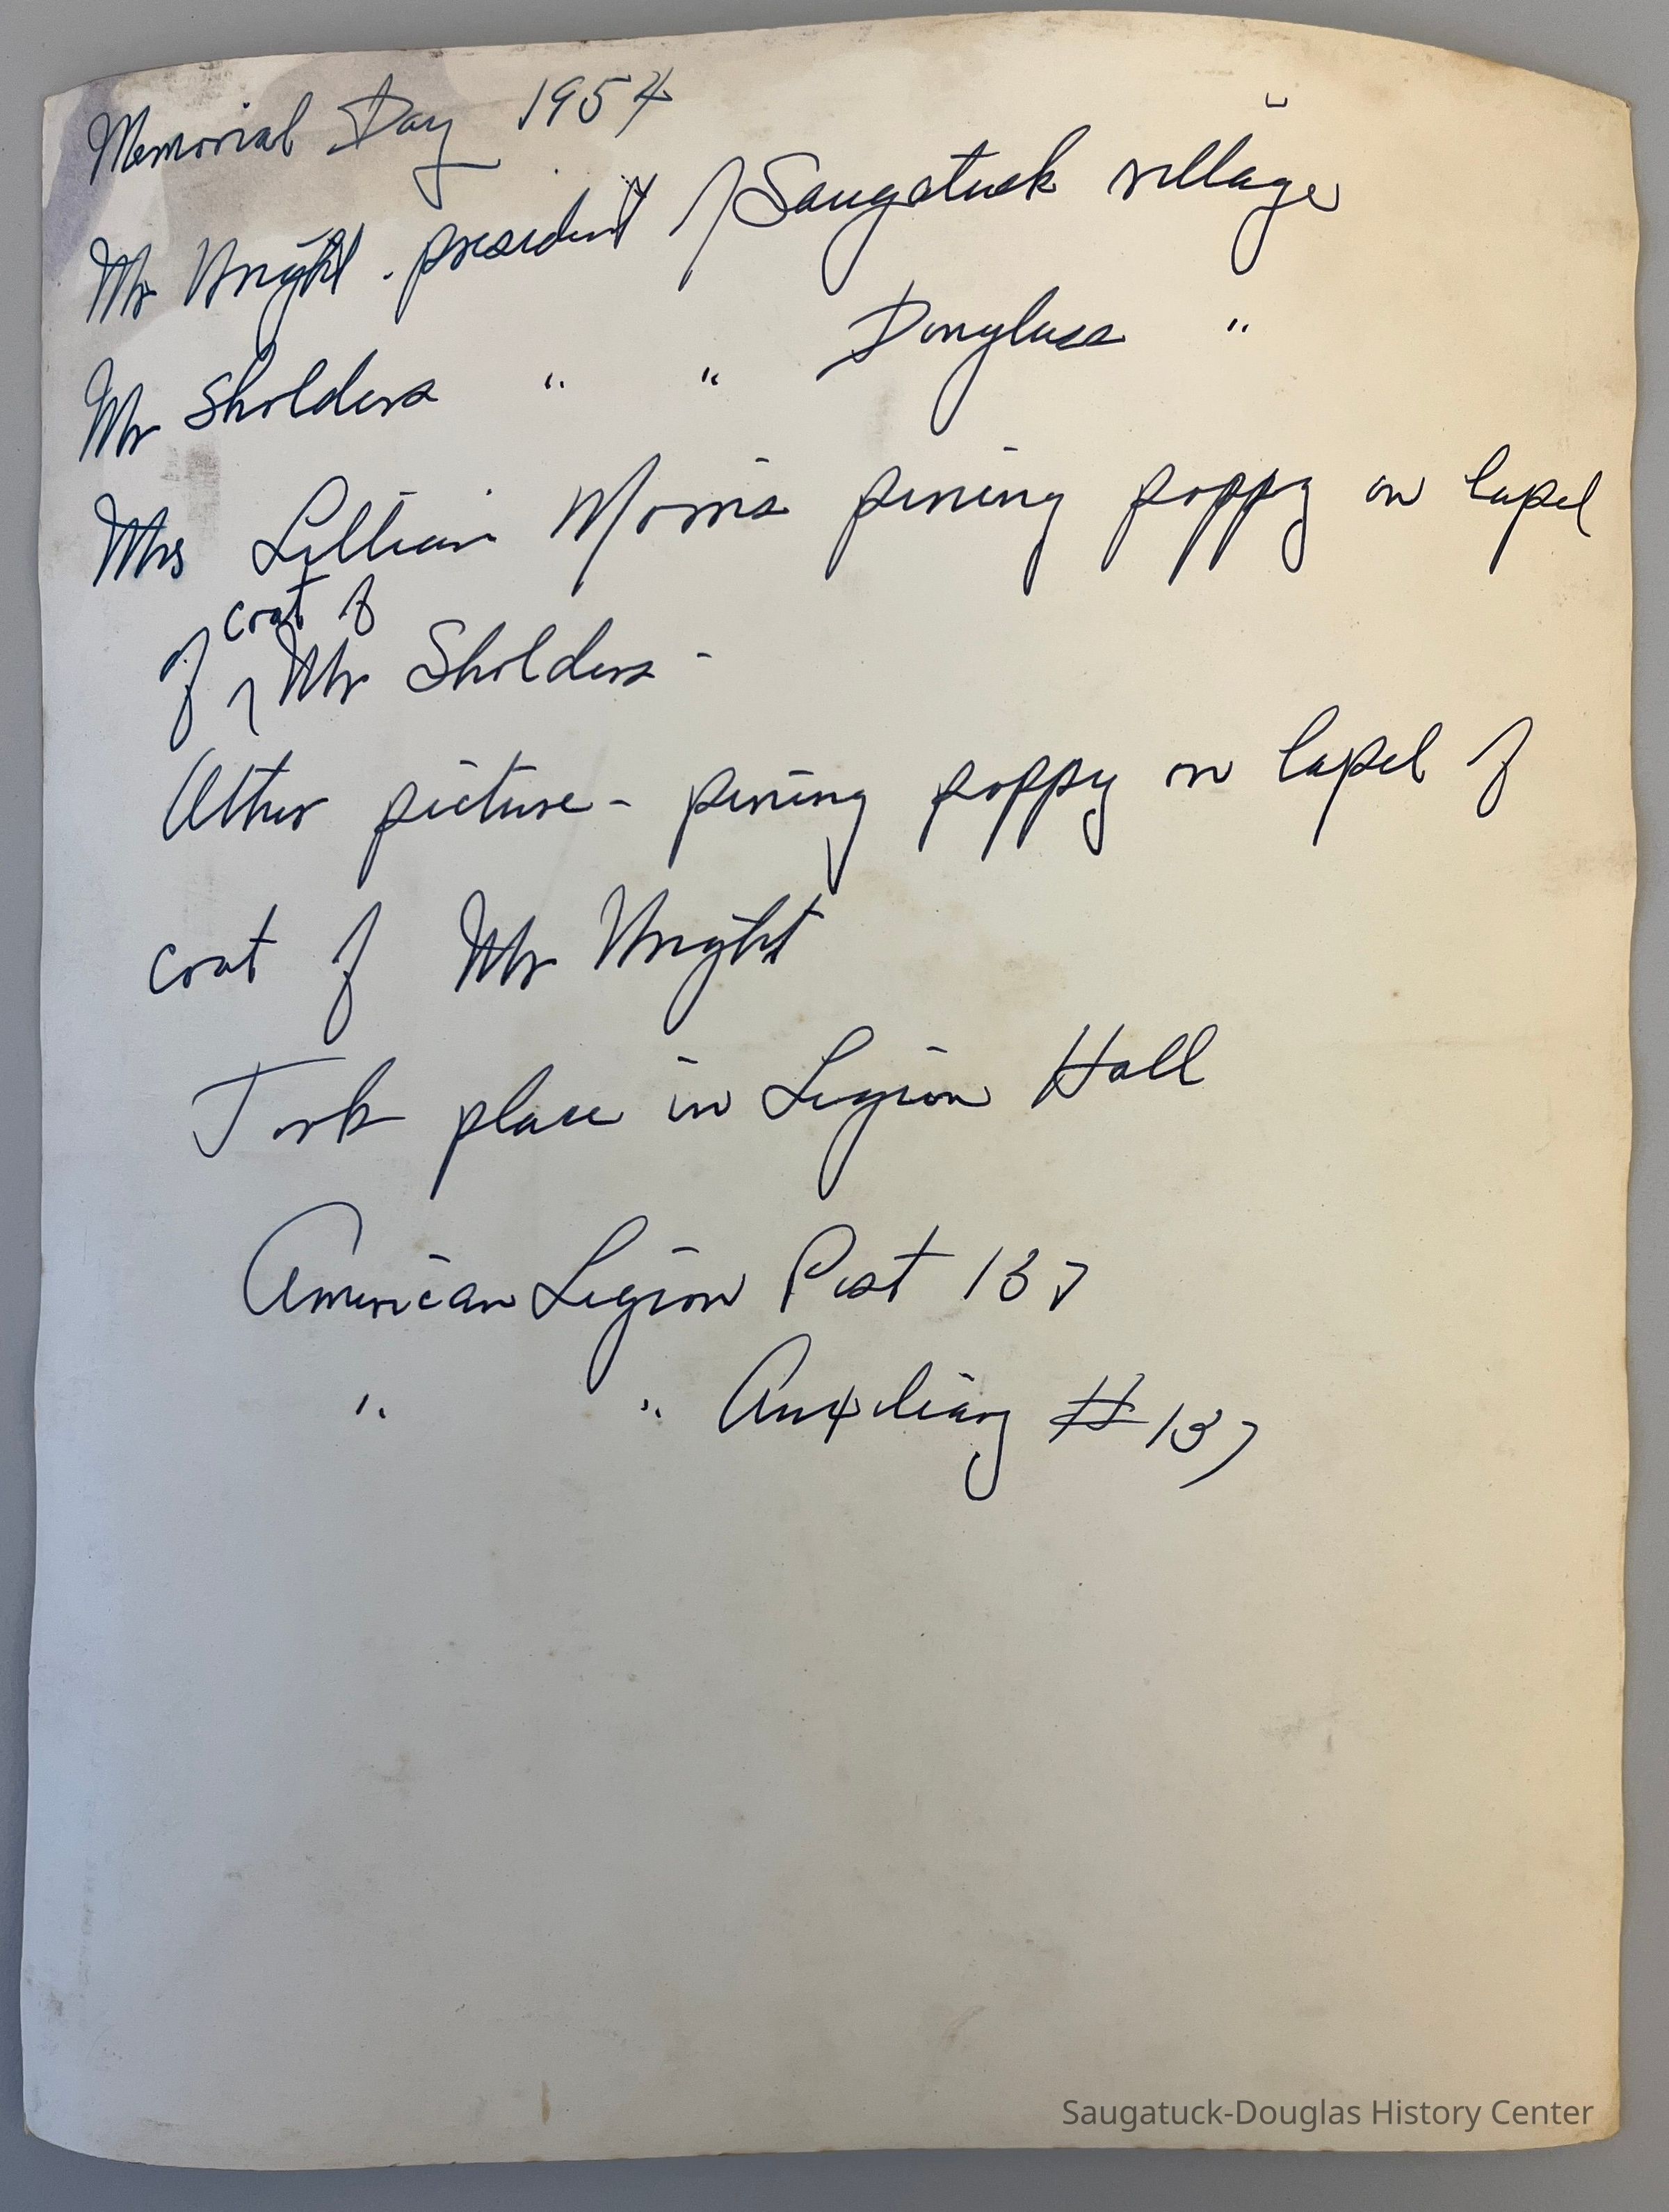 Memorial Day 1954
Mr Wright - president of Saugatuck village
Mr Sholders " " Douglass "
Mrs Lillian Morris pining poppy on lapel
of coat of Mr Sholders -
Other picture - pining poppy on lapel of
coat of Mr Wright
Took place in Legion Hall
American Legion Post 137
" " Auxiliary # 137
Saugatuck-Douglas History Center